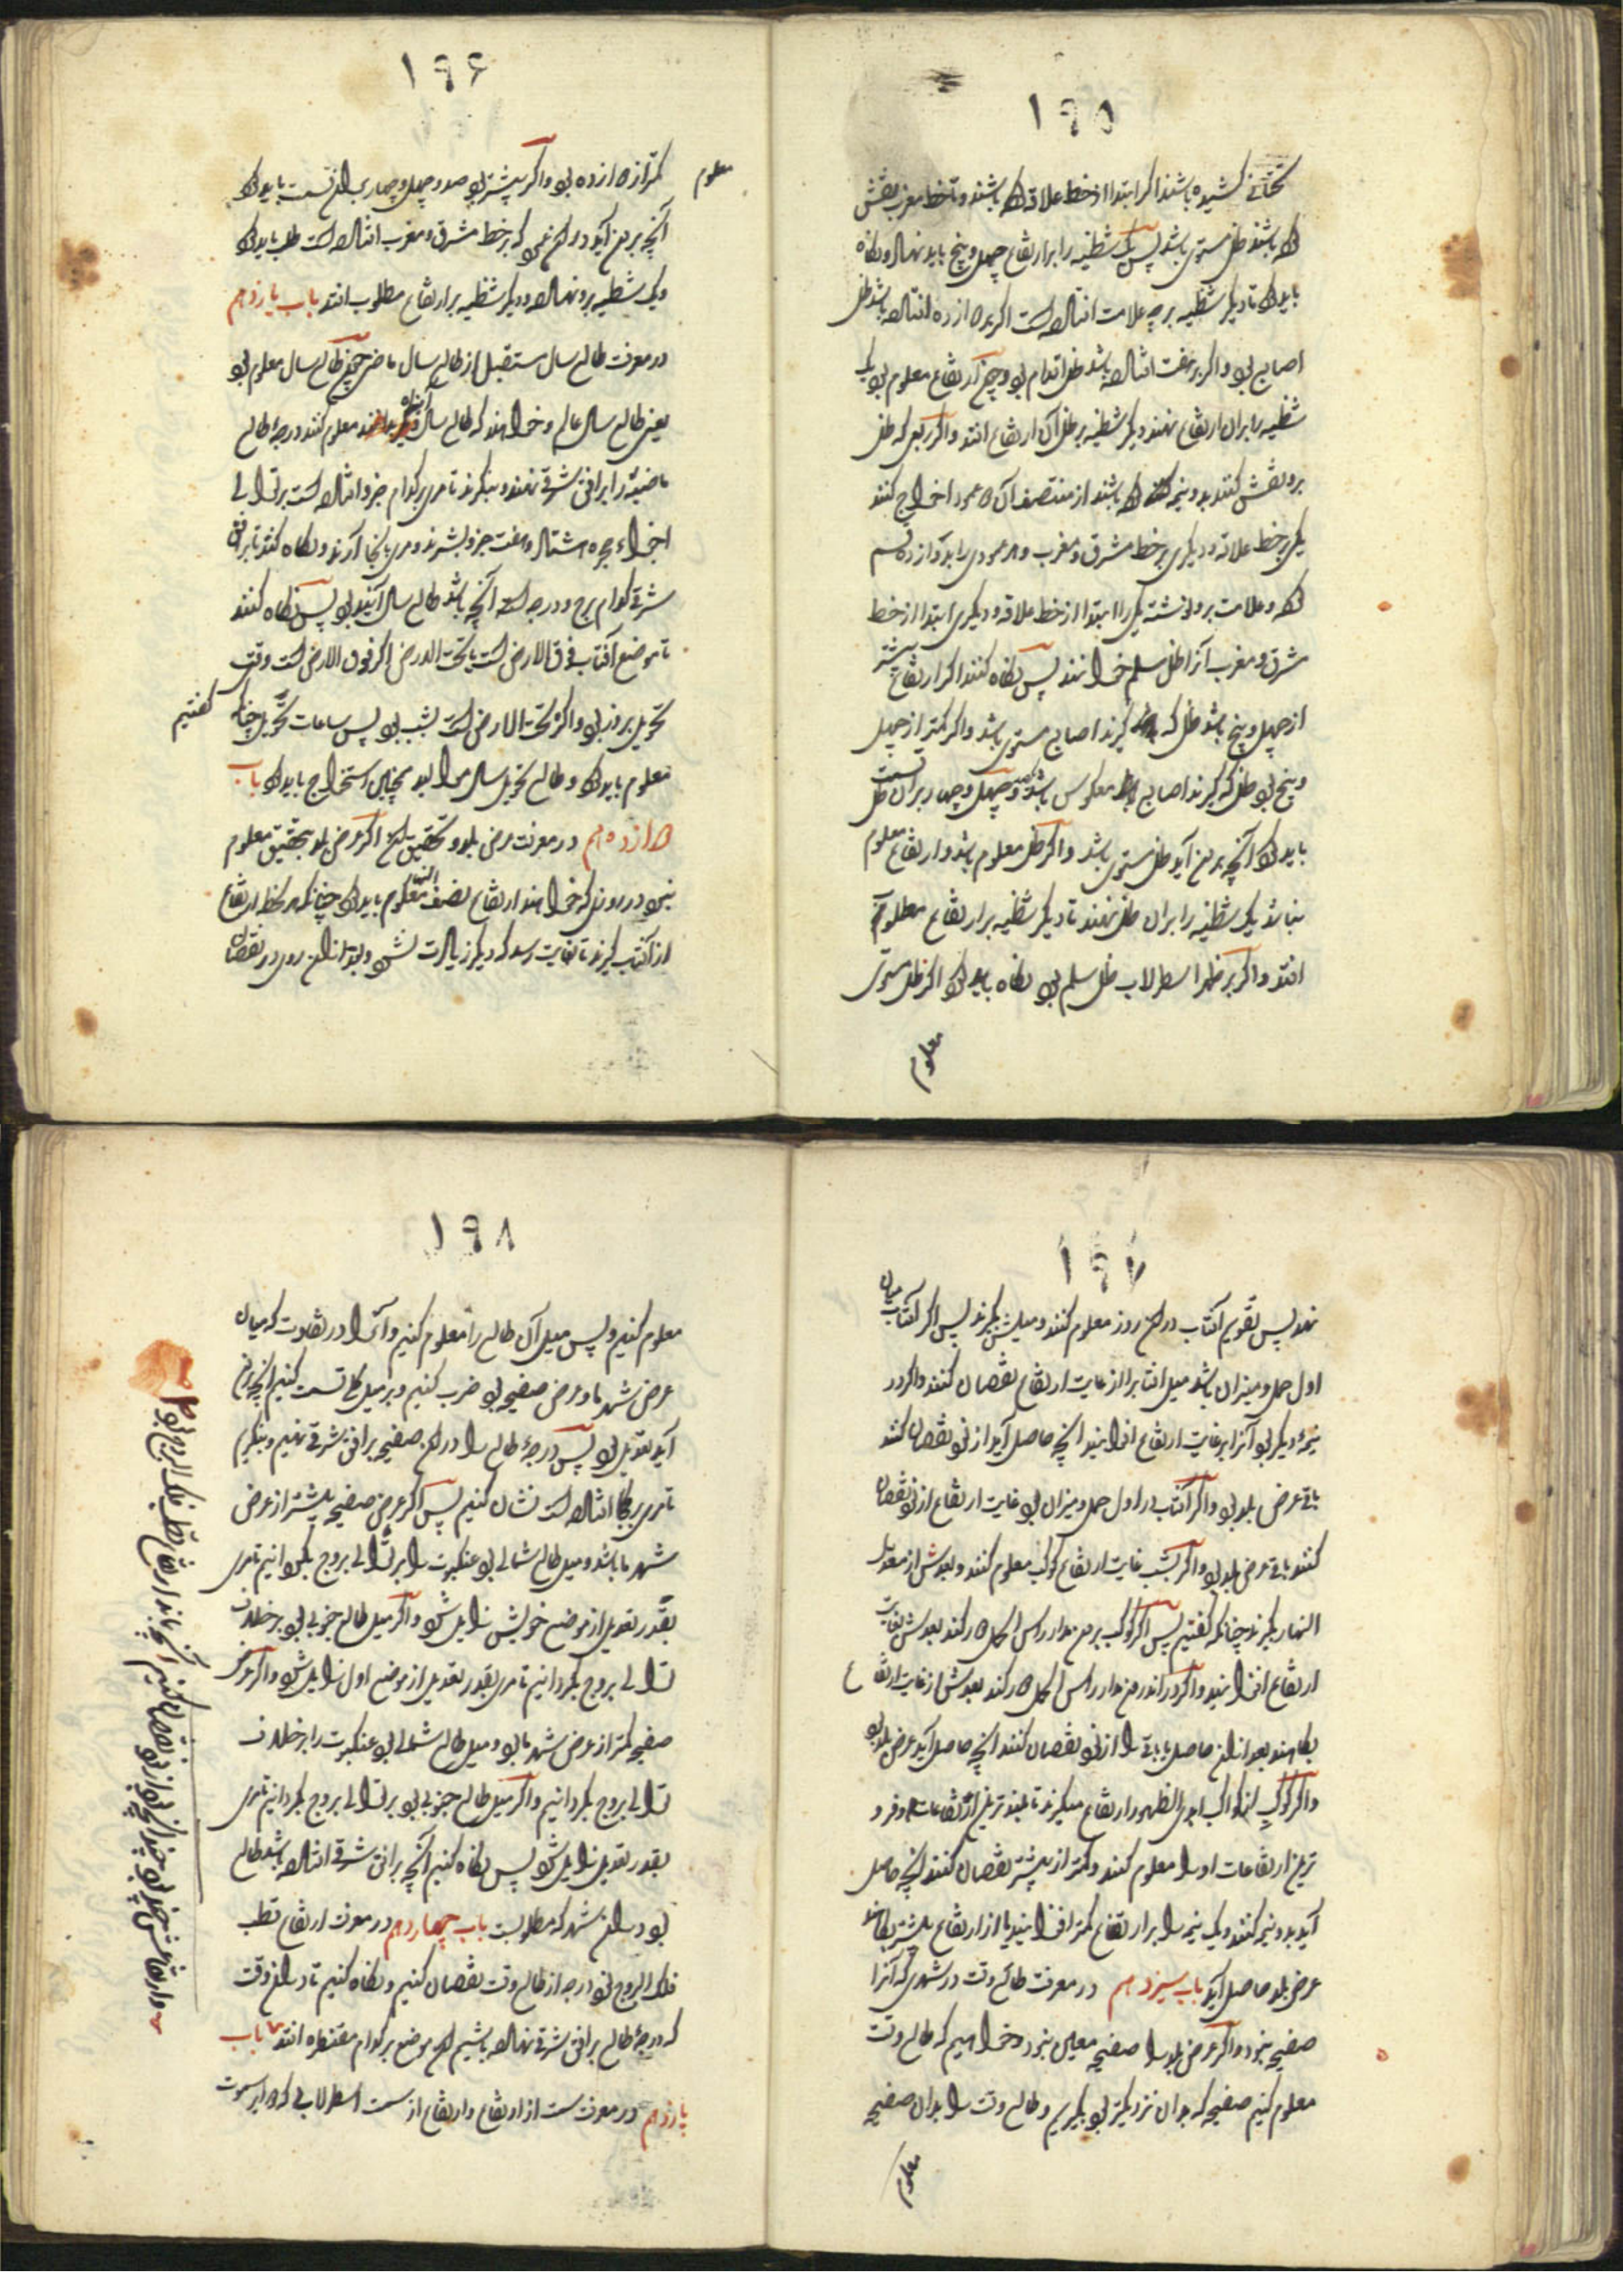 ۱۹۵
تحتانی کشیده باشند اگر ابتدا از خط علاقه کرده باشند و تا خط مغرب نقش
کرده باشند ظل مستوی باشد پس یک شظیه را بر ارتفاع چهل و پنج باید نهاد و نگاه
باید کرد تا دیگر شظیه بر چه علامت افتاده است اگر بر دوازده افتاده باشد ظل
اصابع بود و اگر بر هفت افتاده باشد ظل اقدام بود و چون ارتفاع معلوم بود یک
شظیه را بر آن ارتفاع نهند دیگر شظیه بر ظل آن ارتفاع افتد و اگر ربعی که ظل
برو نقش کنند بدو نیمه کرده باشند از منتصف آن دو عمود اخراج کنند
یکی بر خط علاقه و دیگری بر خط مشرق و مغرب و هر عمودی را بدوازده قسم
کرده و علامت برو نوشته یکی را ابتدا از خط علاقه و دیگری ابتدا از خط
مشرق و مغرب آنرا ظل سلم خوانند پس نگاه کنند اگر ارتفاع بیشتر
از چهل و پنج باشد ظل که گیرند اصابع مستوی باشد و اگر کمتر از چهل
و پنج بود ظل که گیرند اصابع معکوس باشد و صد و چهل و چهار بر آن ظل قسمت
باید کرد آنچه بیرون آید ظل مستوی باشد و اگر ظل معلوم باشد و ارتفاع معلوم
نباشد یک شظیه را بر آن ظل نهند تا دیگر شظیه بر ارتفاع مطلوب
افتد و اگر بر ظهر اسطرلاب ظل سلم بود نگاه باید کرد اگر ظل مستوی
معلوم
۱۹۶
معلوم
کمتر از دوازده بود و اگر بیشتر بود صد و چهل و چهار بر آن قسمت باید کرد
آنچه بیرون آید در آن عمود که بر خط مشرق و مغرب افتاده است طلب باید کرد
و یک شظیه برو نهاده و دیگر شظیه بر ارتفاع مطلوب افتد باب یازدهم
در معرفت طالع سال مستقبل از طالع سال ماضی چون طالع سال معلوم بود
یعنی طالع سال عالم و خواهند که طالع سال آینده معلوم کنند درجهٔ طالع
ماضیه را بر افق شرقی نهند و بنگرند تا مری بر کدام جزو افتاده است بر توالی
اجزاء حجره هشتاد و هفت جزو بشمرند و مری بآنجا آرند و نگاه کنند تا بر افق
شرقی کدام برج و درجه است آنچه باشد طالع سال آینده بود پس نگاه کنند
تا موضع آفتاب فوق الارض است یا تحت الارض اگر فوق الارض است وقت
تحویل بروز بود و اگر تحت الارض است بشب بود پس ساعات تحویل چنانکه گفتیم
معلوم باید کرد و طالع تحویل سال موالید همچنین استخراج باید کرد باب
دوازدهم در معرفت عرض بلد و تحقیق اگر عرض بلد بتحقیق معلوم
نبود در روزی که خواهند ارتفاع نصف النهار معلوم باید کرد چنانکه هر لحظه ارتفاع
از آفتاب گیرند تا بغایت رسد که دیگر زیادت نشود و بعد از آن روی در نقصان
۱۹۷
نهد پس تقویم آفتاب در آن روز معلوم کنند و میلش بگیرند پس اگر آفتاب میان
اول حمل و میزان باشد میل آفتاب را از غایت ارتفاع نقصان کنند و اگر در
نیمهٔ دیگر بود آنرا بر غایت ارتفاع افزایند آنچه حاصل آید از نود نقصان کنند
باقی عرض بلد بود و اگر آفتاب در اول حمل و میزان بود غایت ارتفاع از نود نقصان
کنند باقی عرض بلد بود و اگر بشب غایت ارتفاع کوکب معلوم کنند و بعدش از معدل
النهار بگیرند چنانکه گفتیم پس اگر کوکب بیرون مدار راس الحمل دور کند بعدش بغایت
ارتفاع افزایند و اگر در اندرون مدار راس الحمل دور کند بعدش از غایت ارتفاع
بکاهند بعد از آن حاصل یا باقی را از نود نقصان کنند آنچه حاصل آید عرض بلد بود
و اگر کوکب از کواکب ابدی الظهور ارتفاع میگیرند تا بلندترین ارتفاعات و فرو
ترین ارتفاعات او را معلوم کنند و کمتر از بیشتر نقصان کنند آنچه حاصل
آید بدو نیمه کنند و یک نیمه را بر ارتفاع کمتر افزایند یا از ارتفاع بیشتر بکاهند
عرض بلد حاصل آید باب سیزدهم در معرفت طالع وقت در شهری که آنرا
صفیحه نبود و اگر عرض بلد را صفیحه معین نبود و خواهیم که طالع وقت
معلوم کنیم صفیحه که بدان نزدیکتر بود بگیریم و طالع وقت را بدان صفیحه
معلوم
۱۹۸
معلوم کنیم و پس میل آن طالع را معلوم کنیم و آنرا در تفاوت که میان
عرض شهر ما و عرض صفیحه بود ضرب کنیم و بر میل کلی قسمت کنیم آنچه بیرون
آید تعدیل بود پس درجهٔ طالع را در آن صفیحه بر افق شرقی نهیم و بنگریم
تا مری بر کجا افتاده است نشان کنیم پس اگر عرض صفیحه بیشتر از عرض
شهر ما باشد و میل طالع شمالی بود عنکبوت را بر توالی بروج بگردانیم تا مری
بقدر تعدیل از موضع خویش زایل شود و اگر میل طالع جنوبی بود بر خلاف
توالی بروج بگردانیم تا مری بقدر تعدیل از موضع اول زایل شود و اگر عرض
صفیحه کمتر از عرض شهر ما بود و میل طالع شمالی بود عنکبوت را بر خلاف
توالی بروج بگردانیم و اگر میل طالع جنوبی بود بر توالی بروج بگردانیم تا مری
بقدر تعدیل زایل شود پس نگاه کنیم آنچه بر افق شرقی افتاده باشد طالع
بود در آن شهر که مطلوبست باب چهاردهم در معرفت ارتفاع قطب
فلک البروج نود درجه از طالع وقت نقصان کنیم و نگاه کنیم تا در آن وقت
که درجهٔ طالع بر افق شرقی نهاده باشیم آن موضع بر کدام مقنطره افتد باب
پانزدهم در معرفت سمت از ارتفاع و ارتفاع از سمت اسطرلابی که دوایر سموت
نقصان کنیم آنچه بماند ارتفاع قطب فلک البروج بود